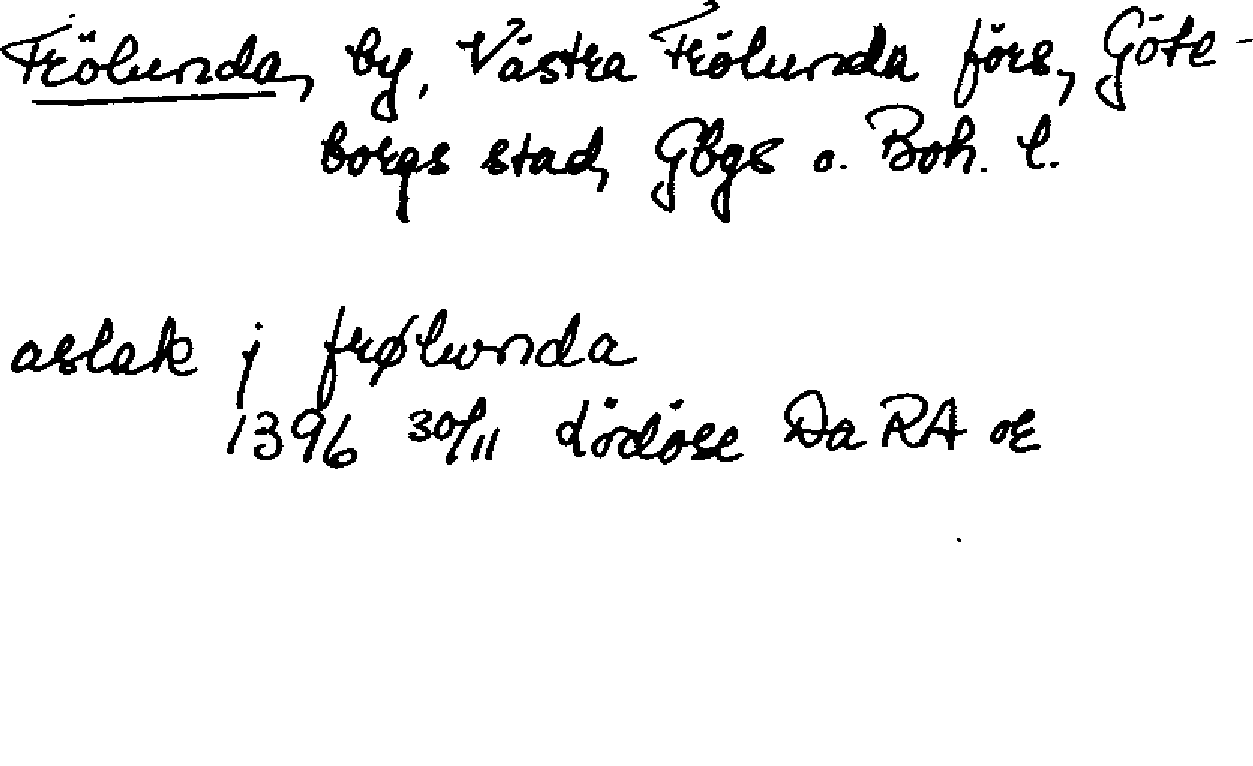 Frölunda, by, Västra Frölunda förs, Göte-
borgs stad, Gbgs o. Boh. l.
aslak j frølunda
1396 30/11 Da RA or